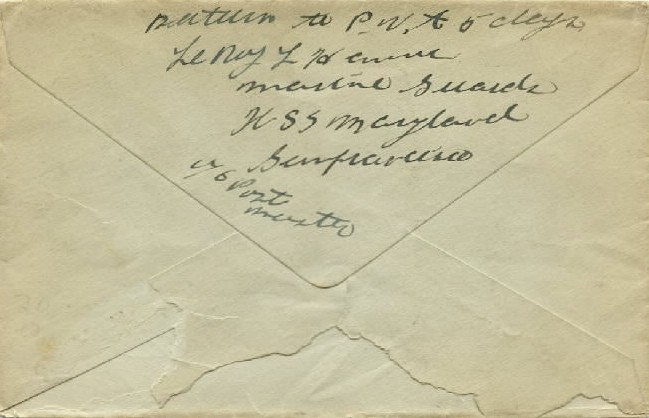 Return to P.V.t 5 days
LeRoy L
Marine Guards
USS Maryland
Sanfrancisco
c/o Post
master